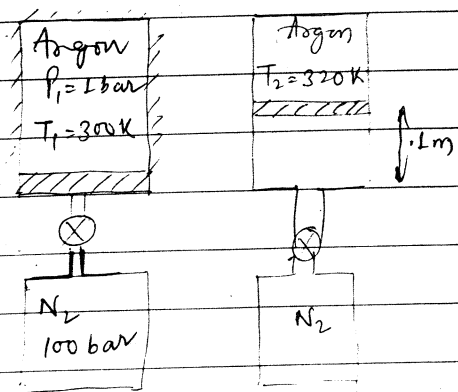 Argon
P₁=1bar
T₁=300K
N₂
100 bar
Argon
T₂=320K
.1m
N₂